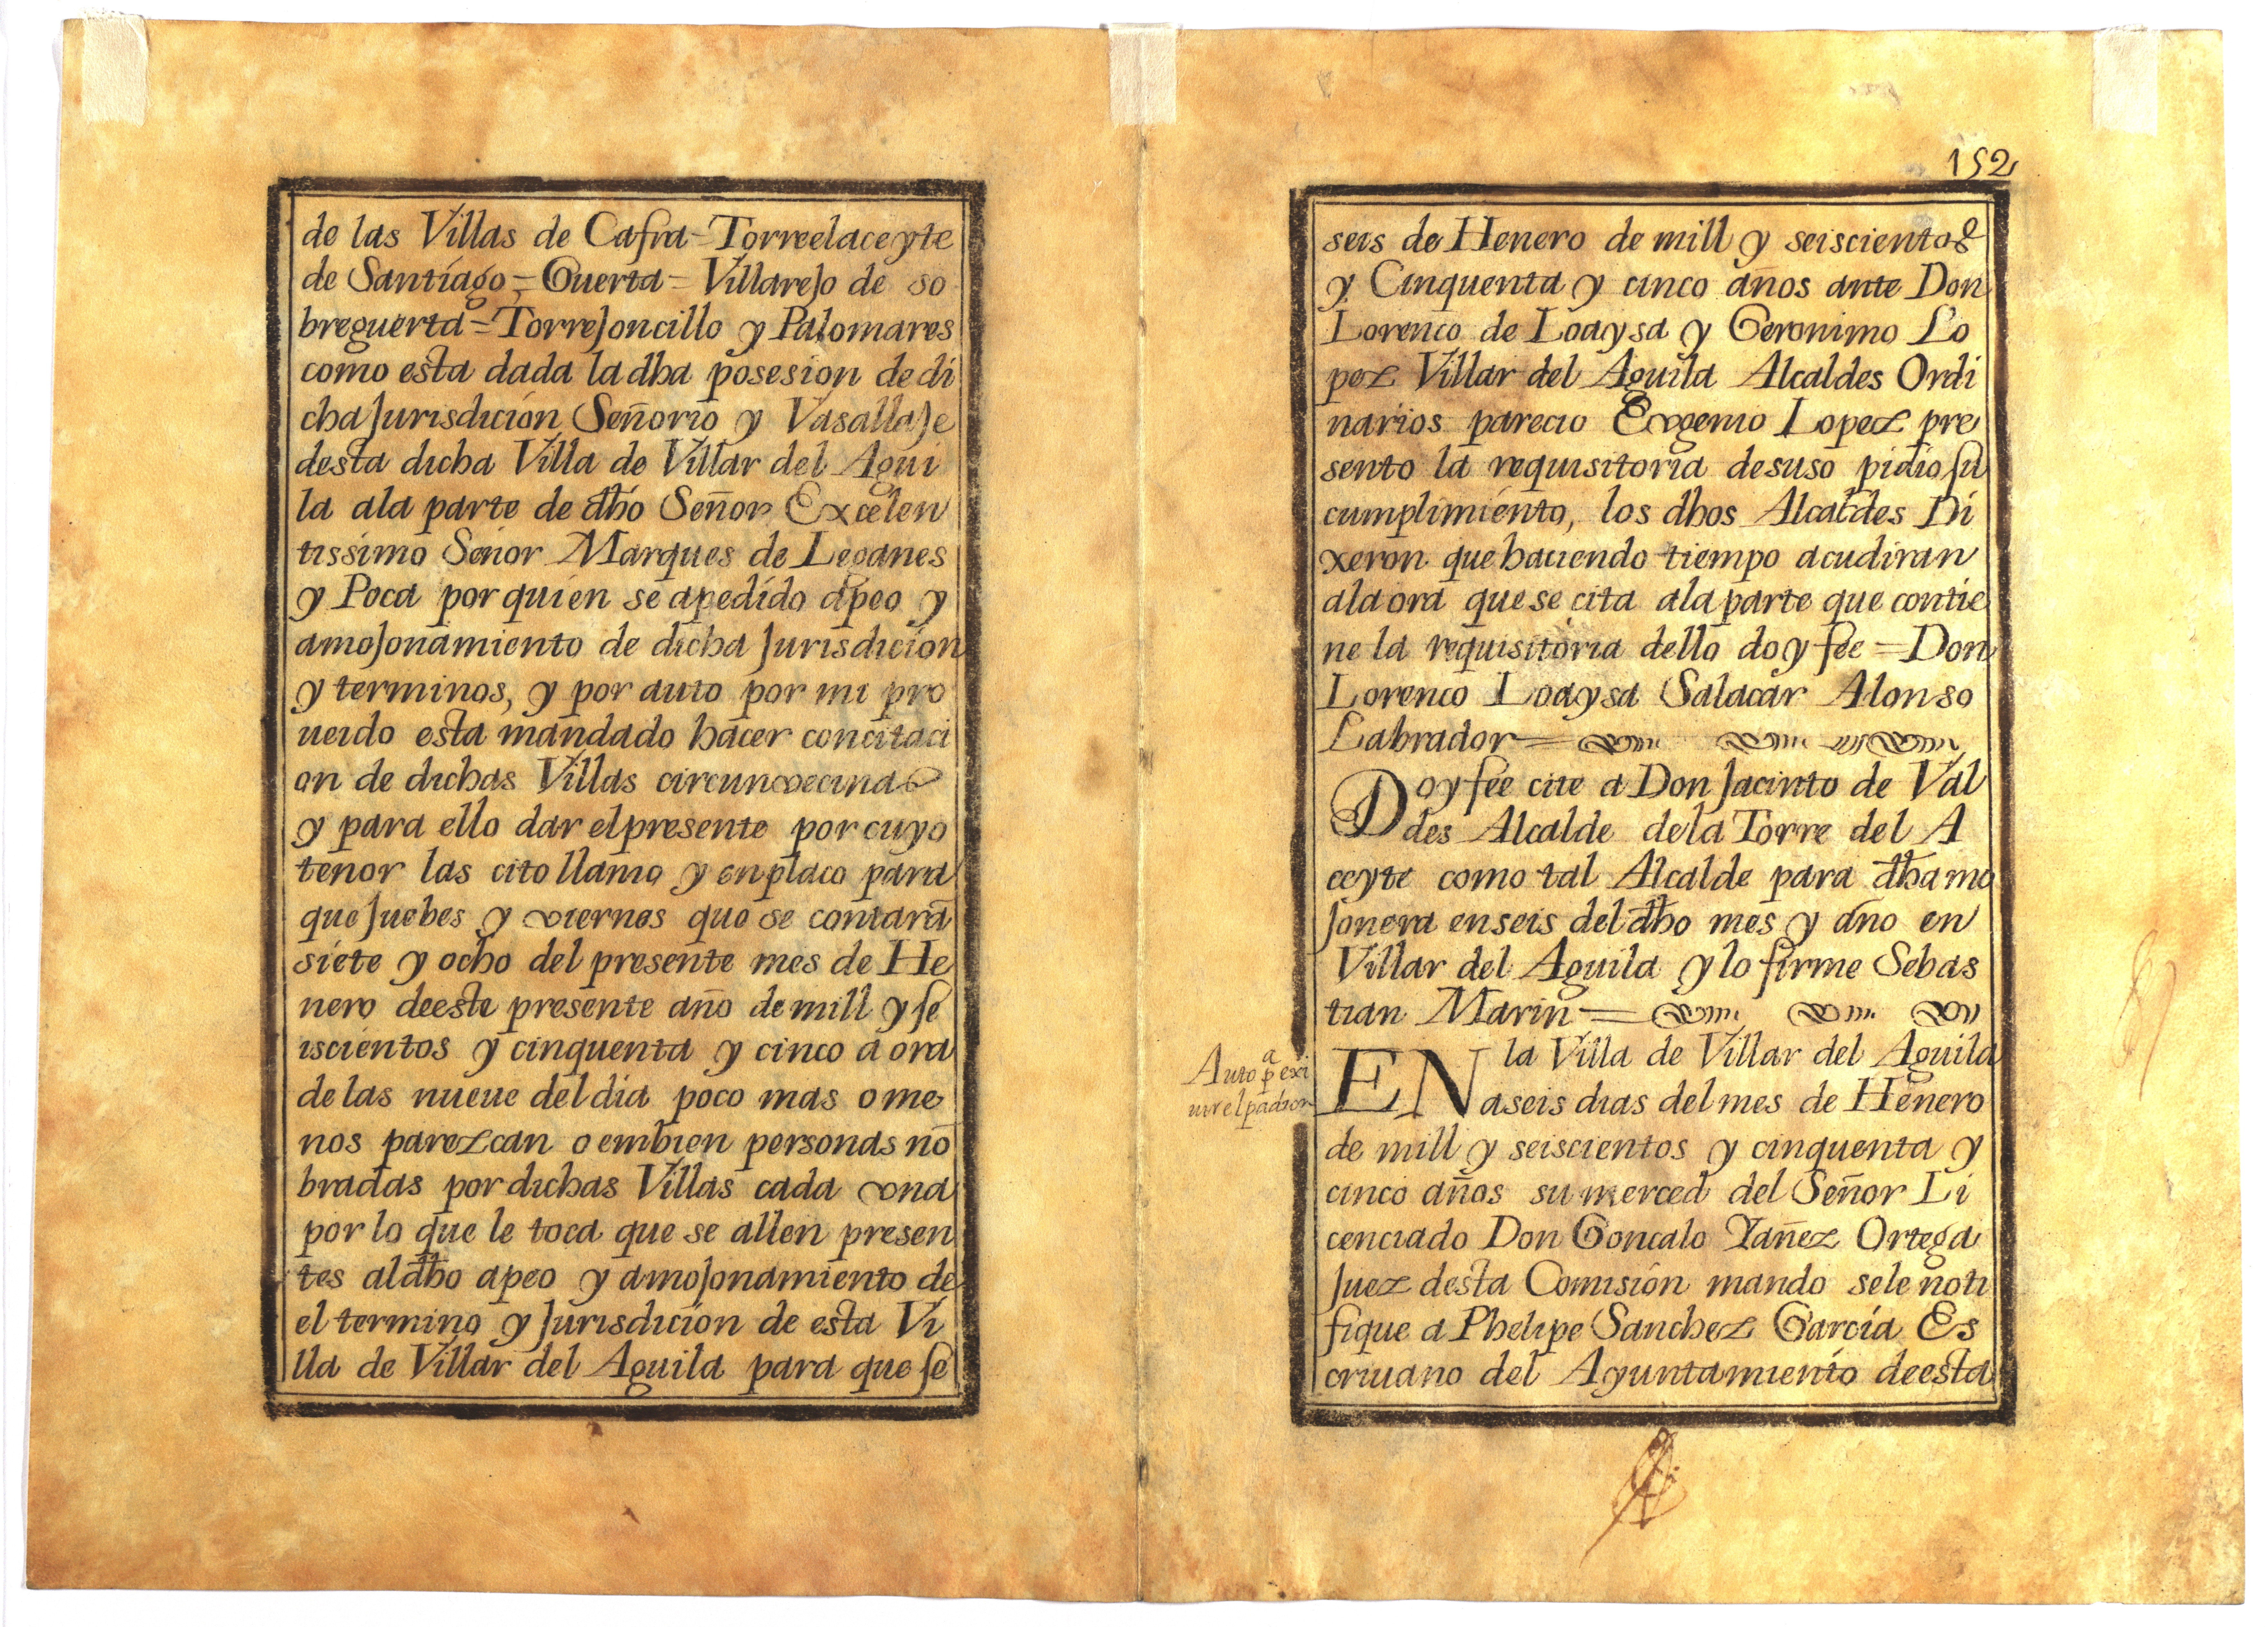 de las Villas de Cafra = Torreelaceyte
de Santiago = Guerta = Villarejo de so
breguerta = Torrejoncillo y Palomares
como esta dada la dha posesion de di
cha Jurisdicion Señorio y Vasallaje
desta dicha Villa de Villar del Agui
la ala parte de dho Señor Excelen
tissimo Señor Marques de Leganes
y Poca por quien se a pedido apeo y
amojonamiento de dicha Jurisdicion
y terminos, y por auto por mi pro
ueido esta mandado hacer concitaci
on de dichas Villas circunvecinas
y para ello dar el presente por cuyo
tenor las cito llamo y enplaco para
que Juebes y viernes que se contarā
siete y ocho del presente mes de He
nero deeste presente año de mill y se
iscientos y cinquenta y cinco a ora
de las nueue del dia poco mas o me
nos parezcan o embien personas nō
bradas por dichas Villas cada vna
por lo que le toca que se allen presen
tes al dho apeo y amojonamiento de
el termino y Jurisdicion de esta Vi
lla de Villar del Aguila para que se
152
seis de Henero de mill y seiscientos
y Cinquenta y cinco años ante Don
Lorenco de Loaysa y Geronimo Lo
pez Villar del Aguila Alcaldes Ordi
narios parecio Evgenio Lopez pre
sento la requisitoria desuso pidio su
cumplimiento, los dhos Alcaldes Di
xeron que haciendo tiempo acudiran
ala ora que se cita ala parte que contie
ne la requisitoria dello doy fee = Don
Lorenco Loaysa Salacar Alonso
Labrador =
Doy fee cite a Don Jacinto de Val
des Alcalde de la Torre del A
ceyte como tal Alcalde para dha mo
jonera en seis del dho mes y año en
Villar del Aguila y lo firme Sebas
tian Marin =
Auto pa exi
uir el padron
EN la Villa de Villar del Aguila
a seis dias del mes de Henero
de mill y seiscientos y cinquenta y
cinco años su merced del Señor Li
cenciado Don Goncalo Yañez Ortega
Juez desta Comision mando se le noti
fique a Phelipe Sanchez Garcia Es
criuano del Ayuntamiento deesta